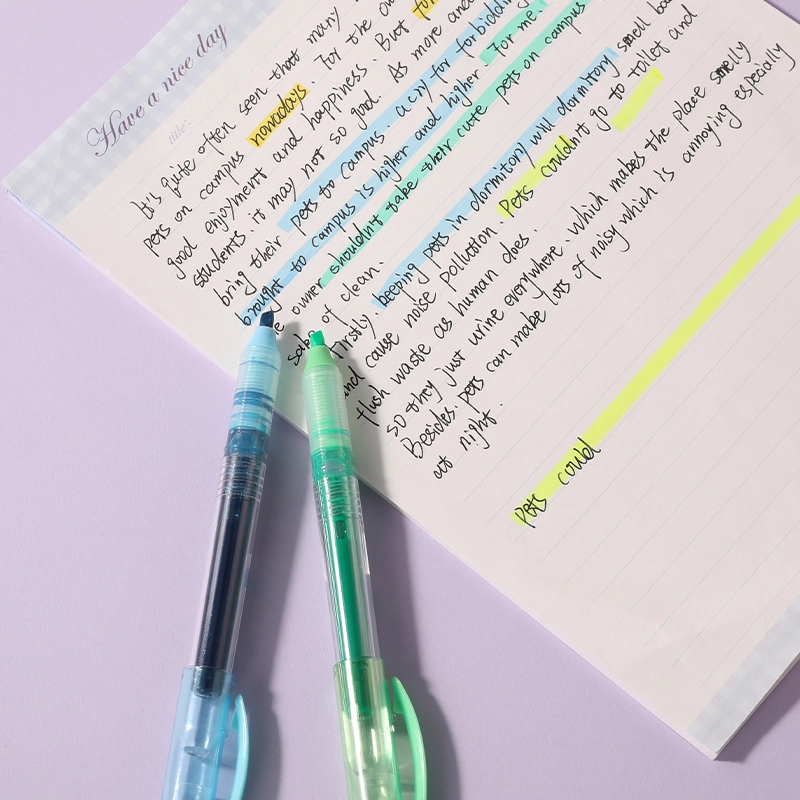 Have a nice day
title:
It's quite often seen that many
pets on campus nowadays. For the
good enjoyment and happiness. But for
students it may not so good. As more and
bring their pets to campus. a cry for forbidding
brought to campus is higher and higher. For me.
owner shouldn't take their cute pets on campus
sake of clean.
Firstly. keeping pets in dormitory will dormitory smell
and cause noise pollution. Pets couldn't go to toilet and
flush waste as human does.
so they just urine everywhere. Which makes the place smelly
Besides. pets can make lots of noisy which is annying especially
at night.
Pets could